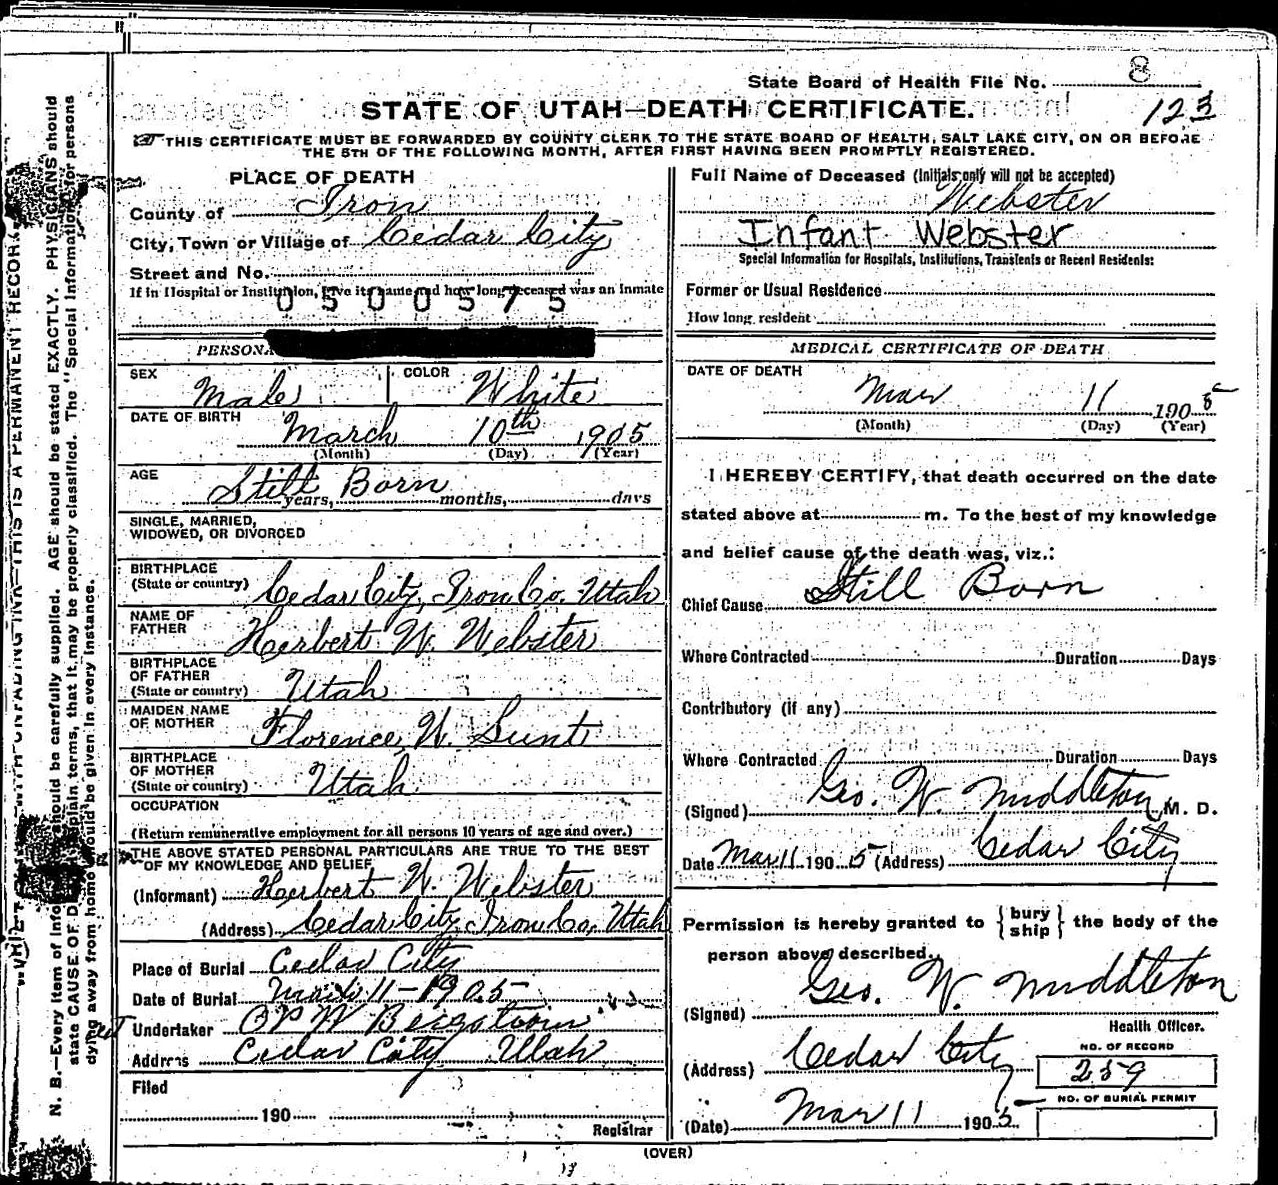 State Board of Health File No. 8
STATE OF UTAH—DEATH CERTIFICATE. 123
THIS CERTIFICATE MUST BE FORWARDED BY COUNTY CLERK TO THE STATE BOARD OF HEALTH, SALT LAKE CITY, ON OR BEFORE
THE 5TH OF THE FOLLOWING MONTH, AFTER FIRST HAVING BEEN PROMPTLY REGISTERED.
PLACE OF DEATH
County of Iron
City, Town or Village of Cedar City
Street and No.
If in Hospital or Institution, give its name and how long deceased was an inmate
0500575
PERSONA
SEX Male COLOR White
DATE OF BIRTH March 10th 1905
(Month) (Day) (Year)
AGE Still Born
years, months, days
SINGLE, MARRIED,
WIDOWED, OR DIVORCED
BIRTHPLACE
(State or country) Cedar City, Iron Co. Utah
NAME OF
FATHER Herbert W. Webster
BIRTHPLACE
OF FATHER
(State or country) Utah
MAIDEN NAME
OF MOTHER Florence W. Lunt
BIRTHPLACE
OF MOTHER
(State or country) Utah
OCCUPATION
(Return remunerative employment for all persons 10 years of age and over.)
THE ABOVE STATED PERSONAL PARTICULARS ARE TRUE TO THE BEST
OF MY KNOWLEDGE AND BELIEF
(Informant) Herbert W. Webster
(Address) Cedar City, Iron Co, Utah
Place of Burial Cedar City
Date of Burial 11-1905
Undertaker O P W Bergstrom
Address Cedar City Utah
Filed
190
Registrar
Full Name of Deceased (Initials only will not be accepted)
Webster
Infant Webster
Special Information for Hospitals, Institutions, Transients or Recent Residents:
Former or Usual Residence
How long resident
MEDICAL CERTIFICATE OF DEATH
DATE OF DEATH
Mar 11 1905
(Month) (Day) (Year)
I HEREBY CERTIFY, that death occurred on the date
stated above at m. To the best of my knowledge
and belief cause of the death was, viz.:
Chief Cause Still Born
Where Contracted Duration Days
Contributory (if any)
Where Contracted Duration Days
(Signed) Geo. W. Middleton M. D.
Date Mar 11 1905 (Address) Cedar City
Permission is hereby granted to {bury
ship} the body of the
person above described.
(Signed) Geo. W. Middleton
Health Officer.
(Address) Cedar City
NO. OF RECORD
259
NO. OF BURIAL PERMIT
(Date) Mar 11 1905
(OVER)
THIS IS A PERMANENT RECOR
N. B.—Every item of should be carefully supplied. AGE should be stated EXACTLY. PHYSICIANS should
state CAUSE OF plain terms, that it may be properly classified. The "Special Information" for persons
dying away from home should be given in every instance.